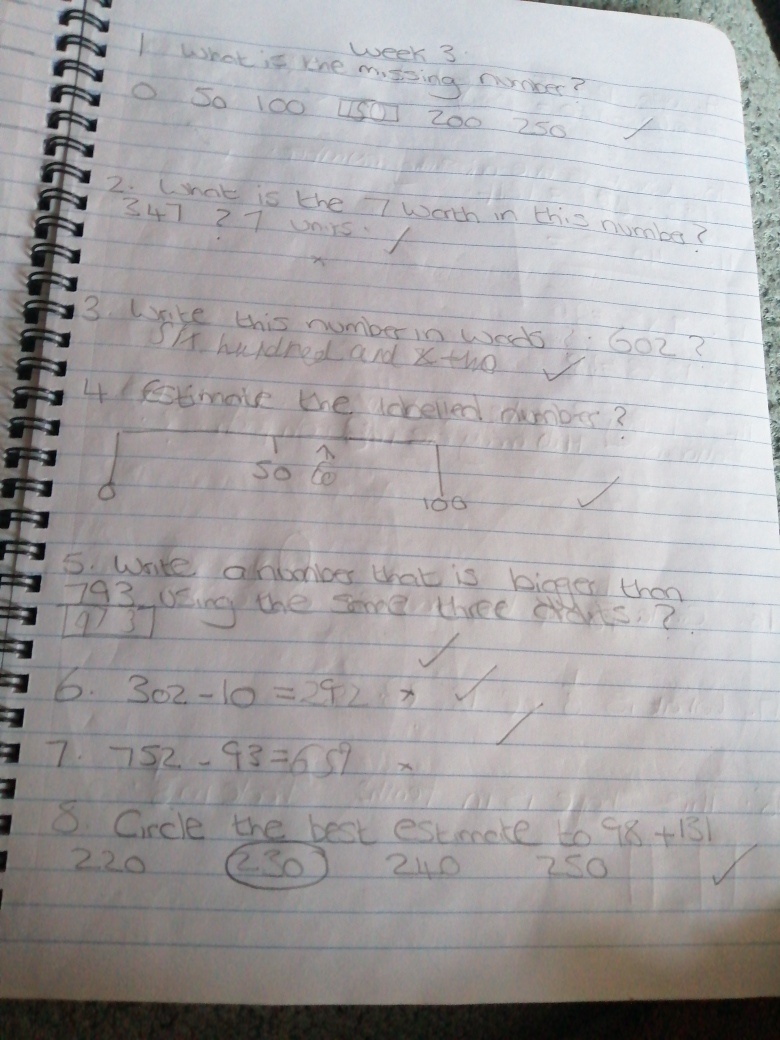 Week 3
1 What is the missing number?
0 50 100 150 200 250
2. What is the 7 worth in this number?
347 ? 7 units.
3. Write this number in words : 602 ?
Six hundred and two
4 Estimate the labelled number?
50 60
0 100
5. Write a number that is bigger than
793 using the same three digits. ?
973
6. 302 - 10 = 292
7. 752 - 93 = 659
8. Circle the best estimate to 98 + 131
220 230 240 250